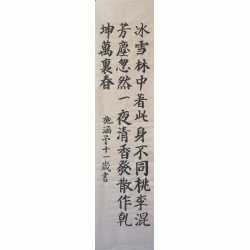 冰雪林中著此身不同桃李混
芳塵忽然一夜清香發散作乾
坤萬裏春
施涵予十一歲書